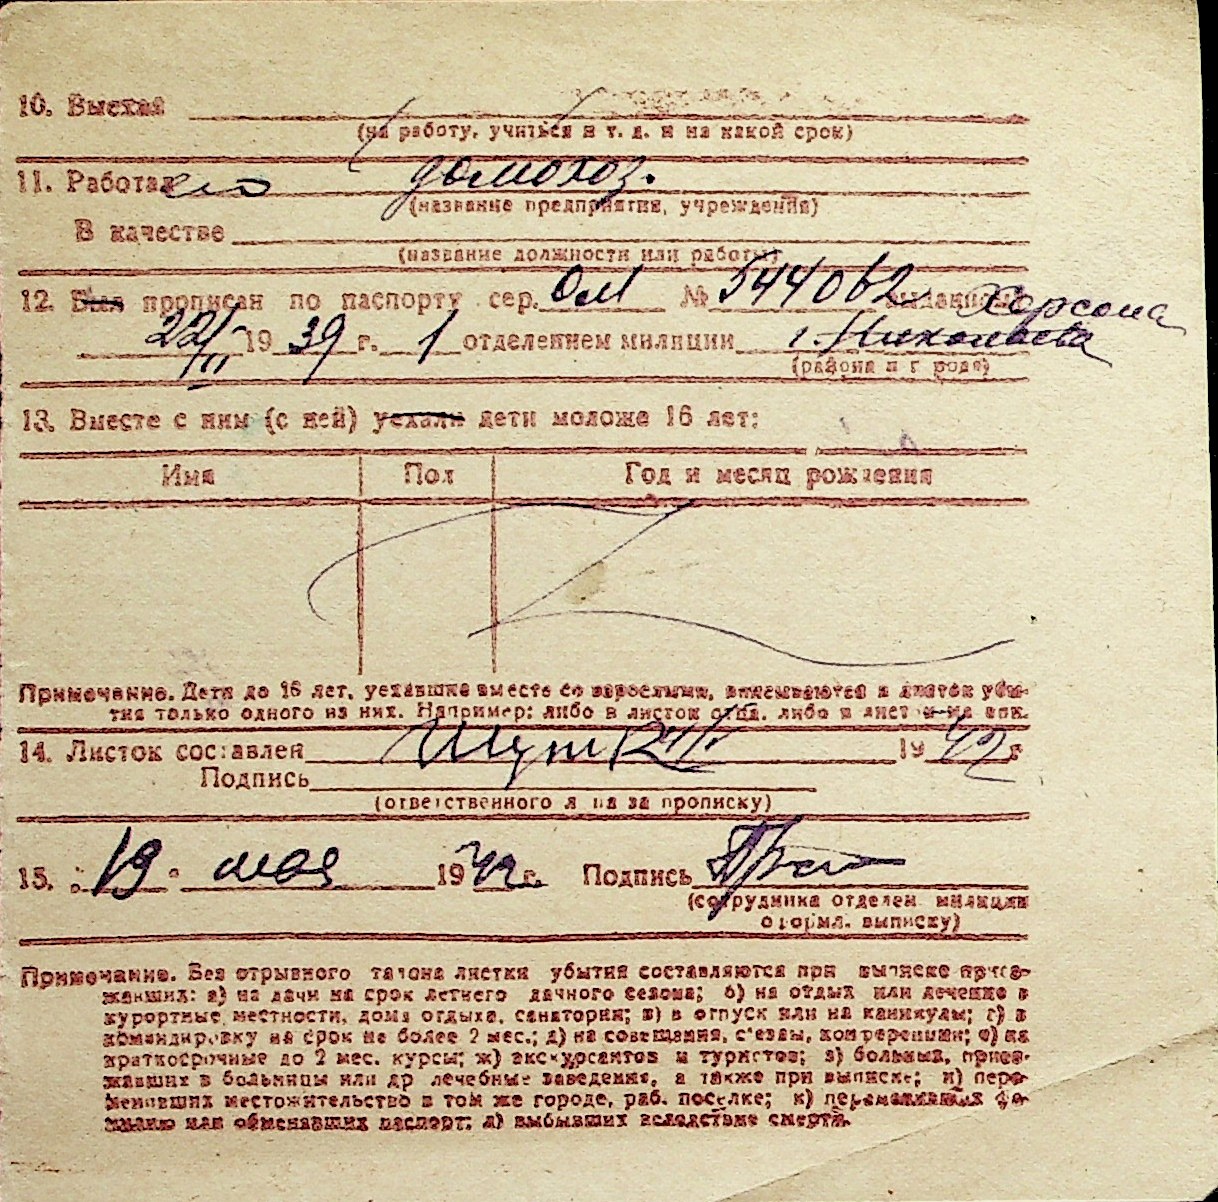 10. Выехал
(на работу, учиться и т. д. и на какой срок)
11. Работал домохоз.
(название предприятия, учреждения)
В качестве
(название должности или работы)
12. Был прописан по паспорту сер. ОМ № 544062 выданному Херсона
22/III 1939 г. 1 отделением милиции г. Николаева
(района и города)
13. Вместе с ним (с ней) уехали дети моложе 16 лет:
Имя Пол Год и месяц рождения
Примечание. Дети до 16 лет, уехавшие вместе со взрослыми, вписываются в листок убы-
тия только одного из них. Например: либо в листок отца, либо в лист
14. Листок составлен 1942 г
Подпись
(ответственного л на за прописку)
15. „19" мая 1942 г. Подпись
(сотрудника отделен. милиции
оформл. выписку)
Примечание. Без отрывного талона листки убытия составляются при выписке приез-
жавших: а) на дачи на срок летнего дачного сезона; б) на отдых или лечение в
курортные местности, дома отдыха, санатории; в) в отпуск или на каникулы; г) в
командировку на срок не более 2 мес.; д) на совещания, с'езды, конференции; е) на
краткосрочные до 2 мес. курсы; ж) экскурсантов и туристов; з) больных, приез-
жавших в больницы или др лечебные заведения, а также при выписке; и) пере-
менивших местожительство в том же городе, раб. поселке; к) переменивших фа-
милию или обменявших паспорт; л) выбывших вследствие смерти.